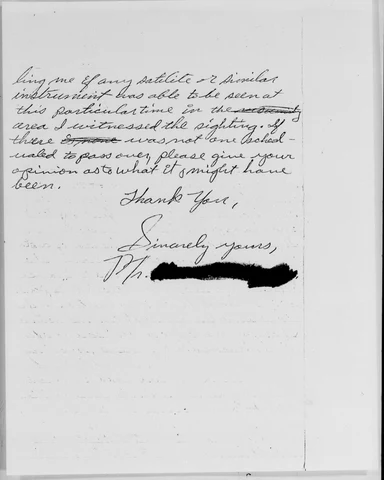 ling me if any satilite or similar
instrument was able to be seen at
this particular time in the
area I witnessed the sighting. If
there was not one sched-
ualed to pass over, please give your
opinion as to what it might have
been.
Thank You,
Sincarely yours,
Mr.